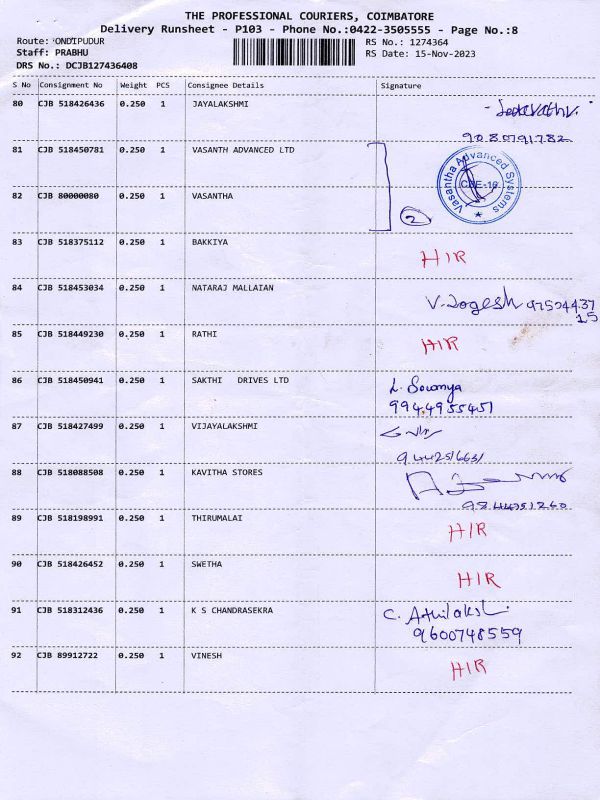 THE PROFESSIONAL COURIERS, COIMBATORE
Delivery Runsheet - P103 - Phone No.:0422-3505555 - Page No.:8
Route: ONDIPUDUR
RS No.: 1274364
Staff: PRABHU
RS Date: 15-Nov-2023
DRS No.: DCJB127436408
S No Consignment No Weight PCS Consignee Details Signature
80 CJB 518426436 0.250 1 JAYALAKSHMI
9080791782
81 CJB 518450781 0.250 1 VASANTH ADVANCED LTD
Vasantha Advanced Systems
CBE-16
82 CJB 80000080 0.250 1 VASANTHA
2
83 CJB 518375112 0.250 1 BAKKIYA HIR
84 CJB 518453034 0.250 1 NATARAJ MALLAIAN
V. Jogesh 97504437
15
85 CJB 518449230 0.250 1 RATHI HIR
86 CJB 518450941 0.250 1 SAKTHI DRIVES LTD L. Sowmya
9944955451
87 CJB 518427499 0.250 1 VIJAYALAKSHMI
9442516631
88 CJB 518088508 0.250 1 KAVITHA STORES
89 CJB 518198991 0.250 1 THIRUMALAI HIR
90 CJB 518426452 0.250 1 SWETHA HIR
91 CJB 518312436 0.250 1 K S CHANDRASEKRA C.
9600748559
92 CJB 89912722 0.250 1 VINESH HIR